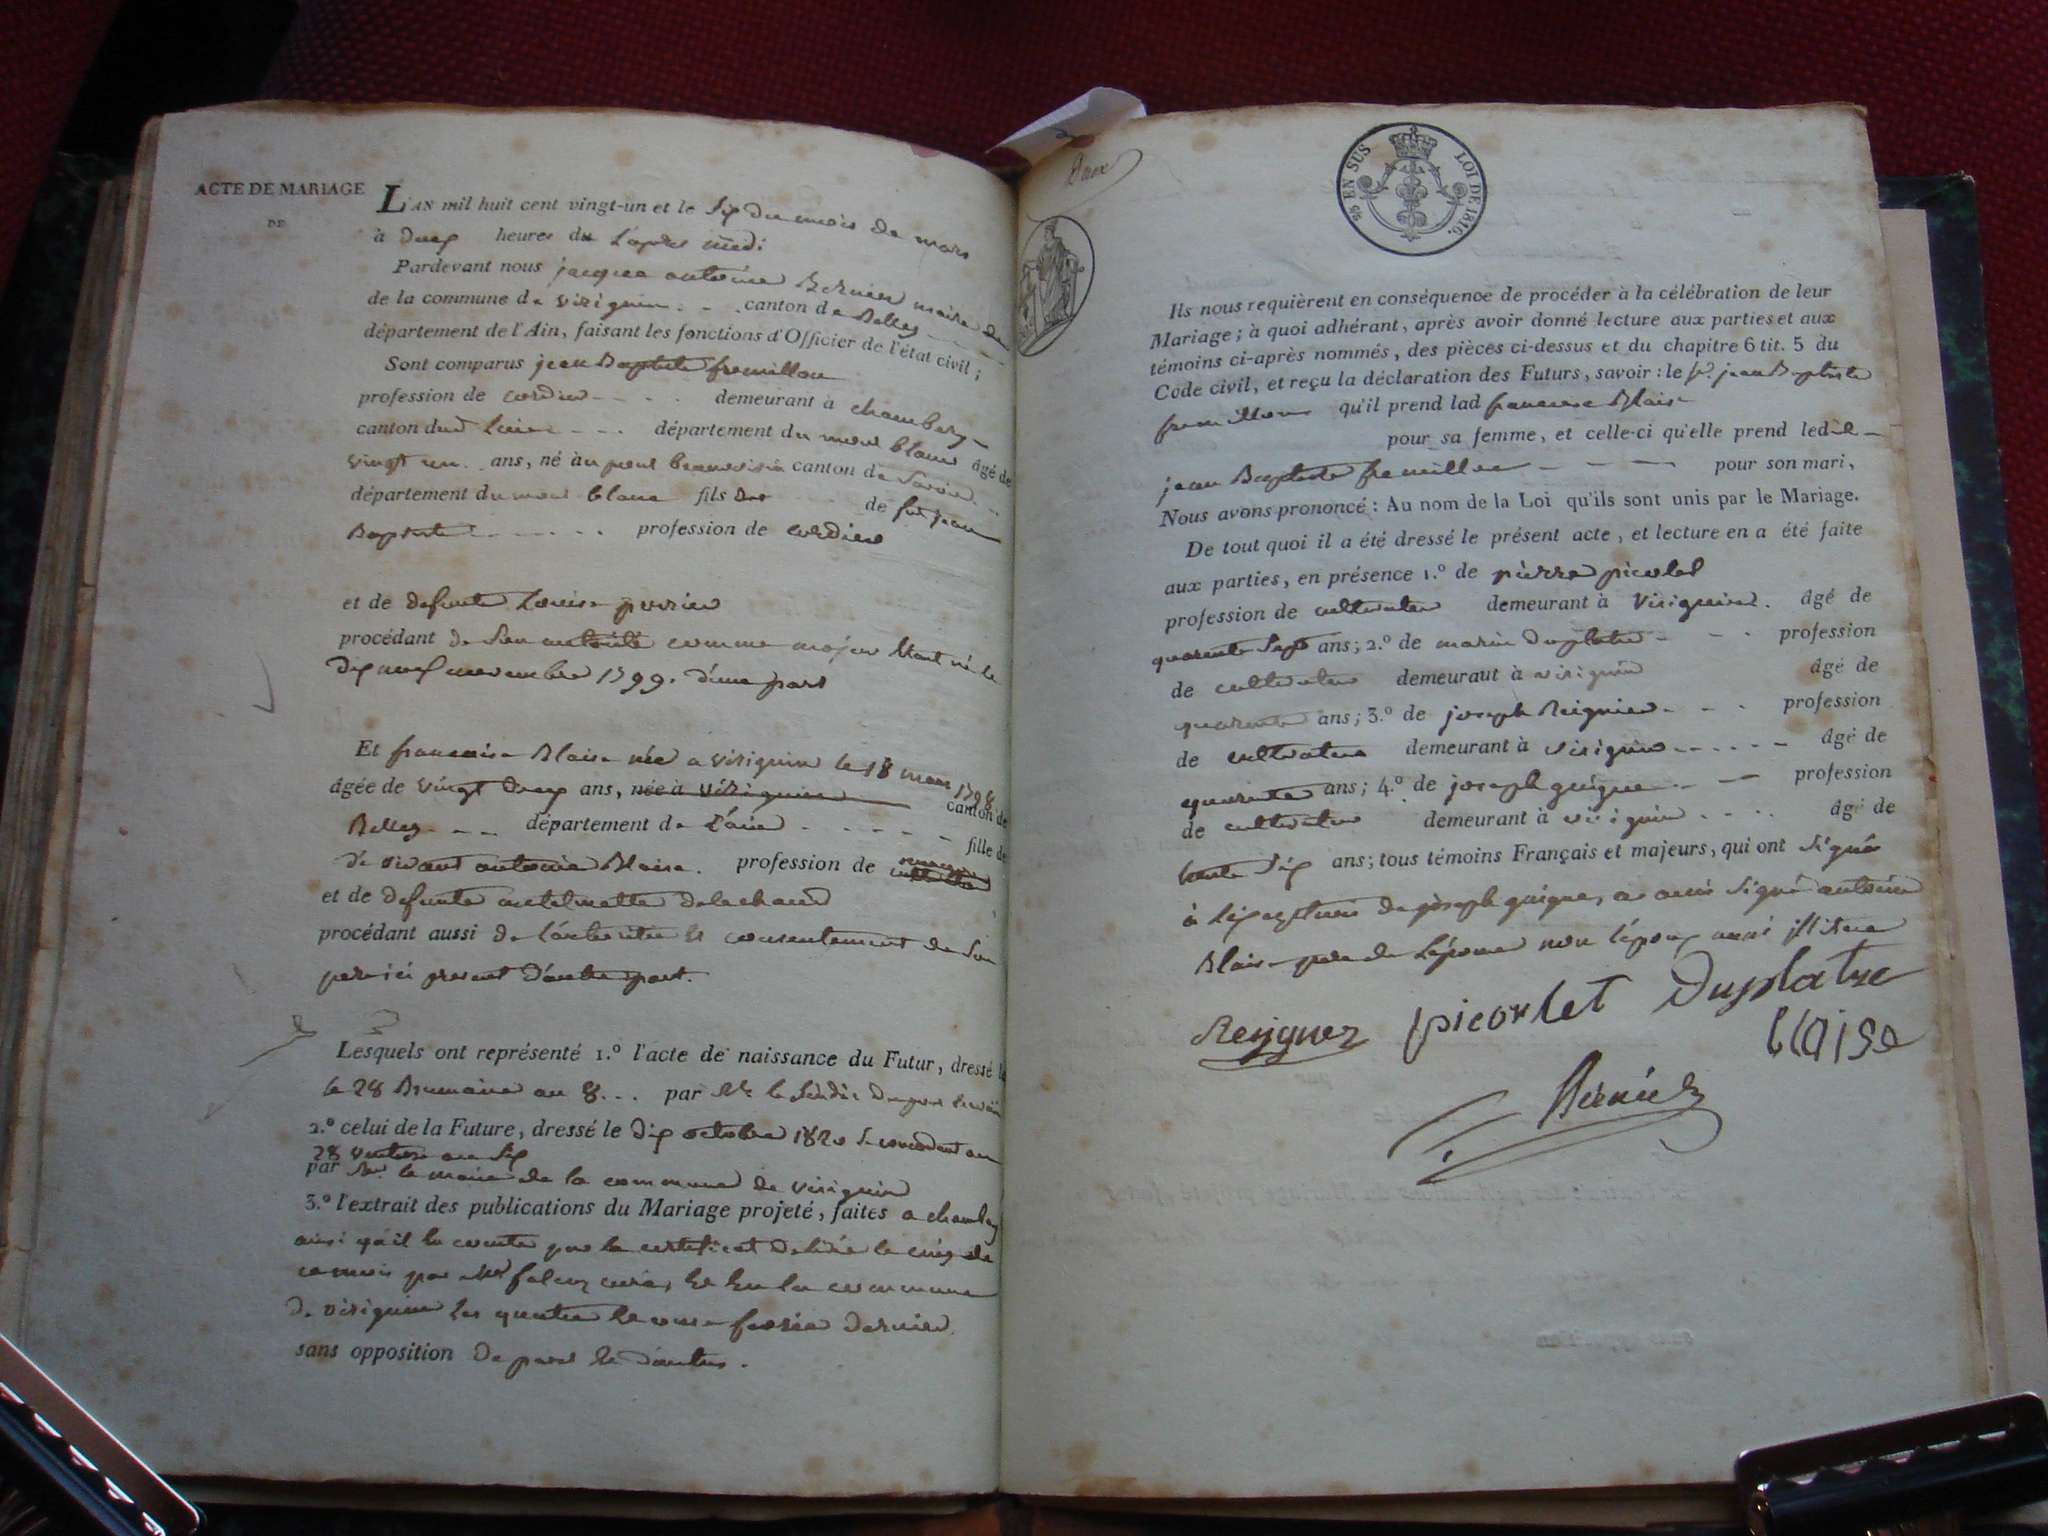 ACTE DE MARIAGE
DE
L'AN mil huit cent vingt-un et le Six du mois de mars
à deux heures du L'après midi
Pardevant nous jacques antoine Bernier maire de
de la commune de virignin canton de Belley
département de l'Ain, faisant les fonctions d'Officier de l'état civil;
Sont comparus jean Baptiste fremillon
profession de cordier demeurant à chambery
canton dud département du mont blanc âgé de
vingt un ans, né au pont beauvoisin canton de Savoie
département du mont blanc fils de feu jean
Baptiste profession de cordier
et de defunte Louise
procédant de Son autorité comme majeur étant né le
dix neuf novembre 1799. d'une part
Et francoise Blaise née a virignin le 18 mars 1798
âgée de vingt deux ans, née à virignin canton de
Belley département de L'ain fille de
de vivant antoine Blaise. profession de
et de defunte antelmette delachaud
procédant aussi de L'autorité et consentement de Son
pere ici present d'autre part.
Lesquels ont représenté 1.º l'acte de naissance du Futur, dressé le
le 28 Brumaire an 8 par Mr le
2.º celui de la Future, dressé le dix octobre 1820
28 ventose an Six
par Mr. le maire de la commune de virignin
3.º l'extrait des publications du Mariage projeté, faites a chambery
ainsi qu'il en conste par le certificat délivré le cinq de
ce mois par Mr curé, et en la commune
de virignin les quatre et onze fevrier dernier
sans opposition de part et d'autre.
deux
% EN SUS LOI DE 1816.
Ils nous requièrent en conséquence de procéder à la célébration de leur
Mariage; à quoi adhérant, après avoir donné lecture aux parties et aux
témoins ci-après nommés, des pièces ci-dessus et du chapitre 6 tit. 5 du
Code civil, et reçu la déclaration des Futurs, savoir: le Sr. jean Baptiste
fremillon qu'il prend lad francoise Blaise
pour sa femme, et celle-ci qu'elle prend ledit
jean Baptiste fremillon pour son mari,
Nous avons prononcé: Au nom de la Loi qu'ils sont unis par le Mariage.
De tout quoi il a été dressé le présent acte, et lecture en a été faite
aux parties, en présence 1.º de pierre picolet
profession de cultivateur demeurant à Virignin. âgé de
quarente Sept ans; 2.º de marin duplatre profession
de cultivateur demeuraut à virignin âgé de
quarente ans; 3.º de joseph Reignier profession
de cultivateur demeurant à virignin âgé de
quarente ans; 4.º de joseph guigue profession
de cultivateur demeurant à virignin âgé de
trente Six ans; tous témoins Français et majeurs, qui ont Signé
à L'exception de joseph guigue, a aussi Signé antoine
Blaise pere de L'épouse non L'époux aussi illitere
Reygner picorlet Duplatre
blaise
Bernier